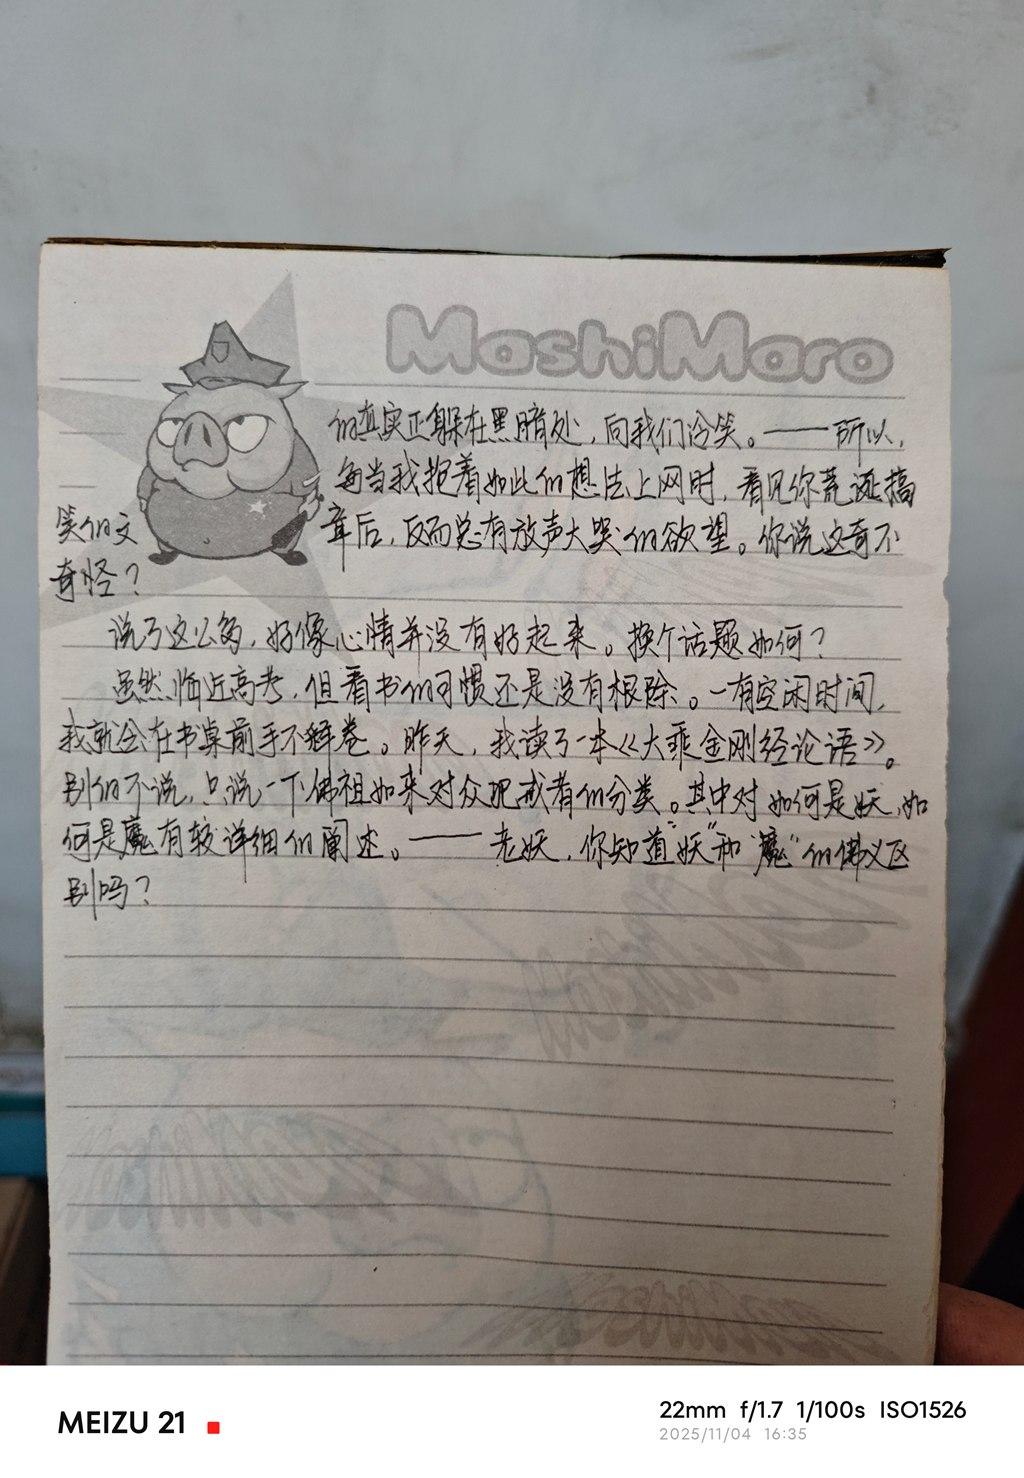 MashiMaro
的真实正躲在黑暗处，向我们冷笑。——所以，
每当我抱着如此的想法上网时，看见你荒诞搞
笑的文章后，反而总有放声大哭的欲望。你说这奇不
奇怪？
说了这么多，好像心情并没有好起来。换个话题如何？
虽然临近高考，但看书的习惯还是没有根除。一有空闲时间，
我就会在书桌前手不释卷。昨天，我读了一本《大乘金刚经论语》。
别的不说，只说一下佛祖如来对众犯戒者的分类。其中对如何是妖，如
何是魔有较详细的阐述。——老妖，你知道"妖"和"魔"的佛义区
别吗？
MEIZU 21
22mm f/1.7 1/100s ISO1526
2025/11/04 16:35